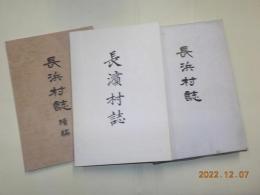 長浜村誌
続編
長濱村誌
長浜村誌
2022.12.07